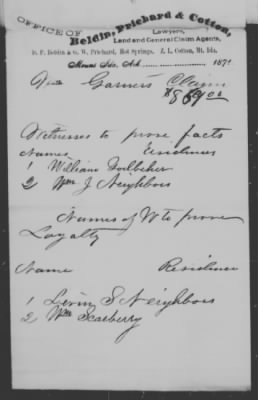 OFFICE OF
Beldin, Prichard & Cotton,
Lawyers,
Land and General Claim Agents,
G. W. Prichard, Hot Springs. Z. L. Cotton, Mt. Ida.
Mount Ida, Ark 187
Garners Claim
$869.00
Witnesses to prove facts
Names
1 William
2 Wm J Neighbors
Names of W to prove
Loyalty
Name Residence
1 S Neighbors
2 Wm Scarberry